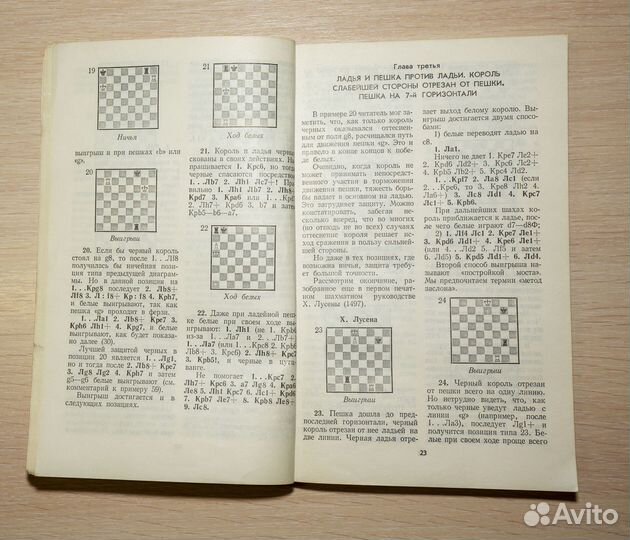 19
Ничья
выигрыш и при пешках «b» или
«g».
20
Выигрыш
20. Если бы черный король
стоял на g8, то после 1. . .Лf8
получилась бы ничейная позиция
типа предыдущей диаграммы.
Но в данной позиции на
1. . .Крg8 последует 2. Лb8+
Лf8 3. Л : f8+ Кр : f8 4. Крh7,
и белые выигрывают, так как
пешка «g» проходит в ферзи.
1. . .Ла1 2. Лb8+ Кре7 3.
Крh6 Лh1+ 4. Крg7, и белые
выигрывают, как будет показано
далее (30).
Лучшей защитой черных в
позиции 20 является 1. . .Лg1,
но и тогда после 2. Лb8+ Кре7
3. Лg8 Лg2 4. Крh7 и затем
g5—g6 белые выигрывают (см.
комментарий к примеру 59).
Выигрыш достигается и в
следующих позициях.
21
Ход белых
21. Король и ладья черных
скованы в своих действиях.
1. Крс6, но тогда
черные спасаются посредством
1. . .Лb7 2. Лh1 Лс7+! При
22
Ход белых
22. Даже при ладейной пешке
белые при своем ходе выигрывают:
1. Лh1 (не 1. Крb6
из-за 1. . .Ла7 и 2. . .Лb7+
1. . .Ла7 (или 1. . .Крс8 2. Крb6
Лb8+ 3. Крс6) 2. Лh8+ Крс7
3. Крb5!, и черные в цугцванге.
Не помогает 1. . .Крс7 2.
Лh7+ Крс6 3. а7 Лg8 4. Кра6
Ле8 5. Лh1 Крс7 6. Лс1+ Крd6
7. Крb7 Ле7+ 8. Крb8 Ле8+
9. Лс8.
Глава третья
ЛАДЬЯ И ПЕШКА ПРОТИВ ЛАДЬИ. КОРОЛЬ
СЛАБЕЙШЕЙ СТОРОНЫ ОТРЕЗАН ОТ ПЕШКИ.
ПЕШКА НА 7-й ГОРИЗОНТАЛИ
В примере 20 читатель мог заметить,
что, как только король
черных оказывался оттесненным
от поля g8, расчищался путь
для движения пешки «g». Это и
привело в конце концов к победе
белых.
Очевидно, когда король не
может принимать непосредственного
участия в торможении
движения пешки, тяжесть борьбы
падает в основном на ладью.
Это затрудняет защиту. Можно
констатировать, забегая несколько
вперед, что во многих
(но отнюдь не во всех) случаях
оттеснение короля решает исход
сражения в пользу сильнейшей
стороны.
Но даже в тех позициях, где
возможна ничья, защита требует
большой точности.
Рассмотрим окончание, разобранное
еще в первом печатном
шахматном руководстве
Х. Лусены (1497).
Х. Лусена
23
Выигрыш
23. Пешка дошла до предпоследней
горизонтали, черный
король отрезан от нее ладьей на
две линии. Черная ладья отрезает
выход белому королю. Выигрыш
достигается двумя способами:
1) белые переводят ладью на
с8.
1. Ла1.
Ничего не дает 1. Кре7 Ле2+
2. Крd6 Лd2+ 3. Крс6 Лс2+
4. Крb5 Лb2+ 5. Крс4 Лd2.
1. . .Крf7 2. Ла8 Лс1 (если
2. . .Кре6, то 3. Кре8 Лh2 4.
Ла6+) 3. Лс8 Лd1 4. Крс7
Лс1+ 5. Крb6.
При дальнейших шахах король
приближается к ладье, после
чего белые играют d7—d8Ф;
2) 1. Лf4 Лс1 2. Кре7 Ле1+
3. Крd6 Лd1+ 4. Кре6 Ле1+
(или 4. . .Лd2 5. Лf5 и затем
6. Лd5) 5. Крd5 Лd1+ 6. Лd4.
Второй способ выигрыша называют
«постройкой моста».
Мы предпочитаем термин «метод
заслона».
24
Выигрыш
24. Черный король отрезан
от пешки всего на одну линию.
Но нетрудно видеть, что, как
только черные уведут ладью с
линии «g» (например, после
1. . .Ла3), последует Лg1+ и
получится позиция типа 23. Белые
при своем ходе проще всего
23
Avito